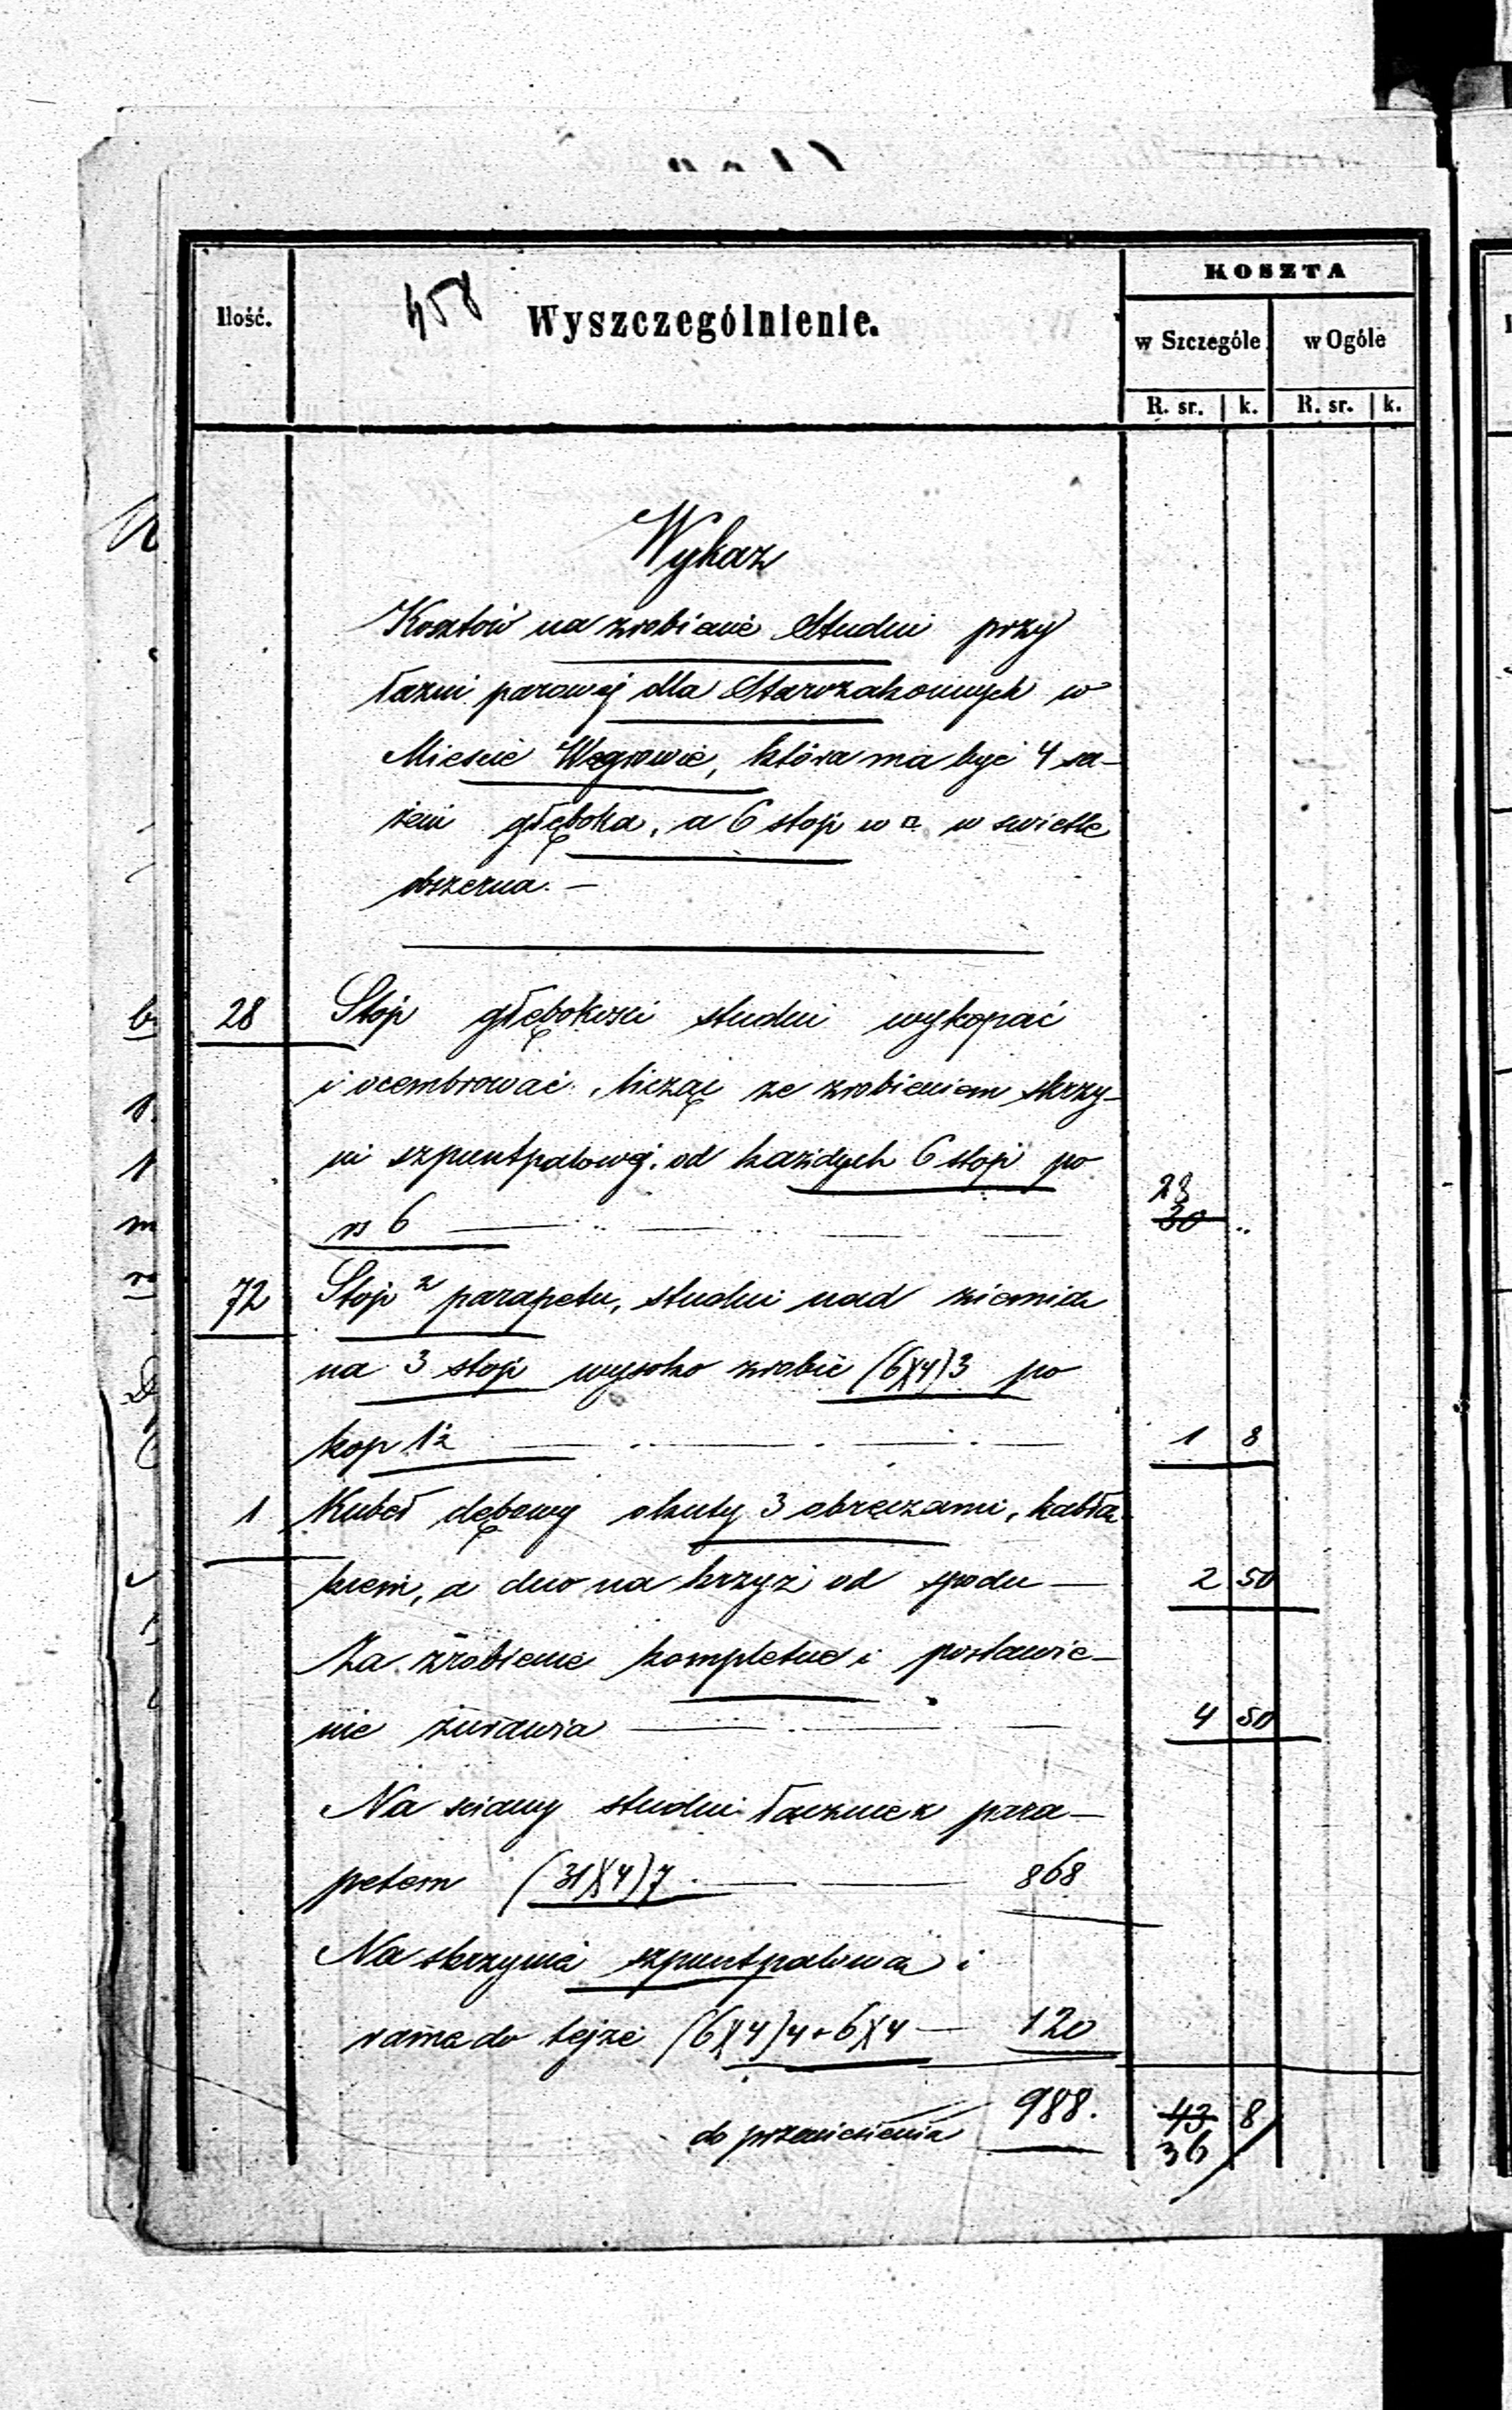 KOSZTA
Ilość. 458 Wyszczególnienie. w Szczególe w Ogóle
R. sr. k. R. sr. k.
Wykaz
Kosztów na zrobienie Studni przy
łazni parowej dla Starozakonnych w
Miescie Węgrowie, która ma być 4 są-
żeni głęboka, a 6 stop w □ w swietle
obszerna. —
28 Stop głębokosci studni wykopać
i ocembrować, licząc ze zrobieniem skrzy-
ni szpuntpalowej, od każdych 6 stop po
rs 6 28 30 ..
72 Stop² parapetu, studni nad ziemią
na 3 stop wysoko zrobić (6)(4)3 po
kop 1½ 1 8
1 Kubeł dębowy okuty 3 obręczami, kabłą
kiem, a dno na krzyż od spodu — 2 50
Za zrobienie kompletne i postawie-
nie żurawia 4 50
Na sciany studni łącznie z para-
petem (31)(4)7 . — 868
Na skrzynię szpuntpalową i
ramę do tejże (6)(4)4+6)(4 — 120
do przeniesienia 988. 43 8
36